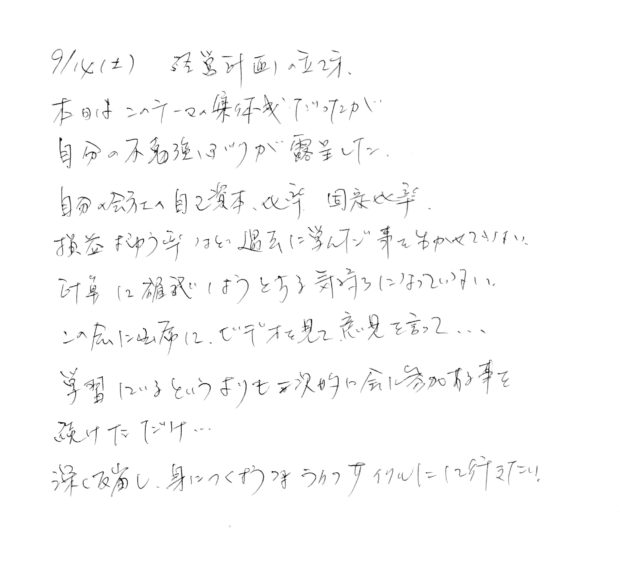 9/14(土) 経営計画の立て方、
本日はこのテーマの集大成だったが
自分の不勉強バツが露呈した。
自分の会社の自己資本比率 固定比率
損益 率など過去に学んだ事を生かせていない。
計算し確認しようとする気持ちになっていない。
この会に出席し、ビデオを見て意見を言って...
学習しているというよりも 次的に会に参加する事を
続けただけ...
深く反省し、身につくような サイクルにして行きたい。